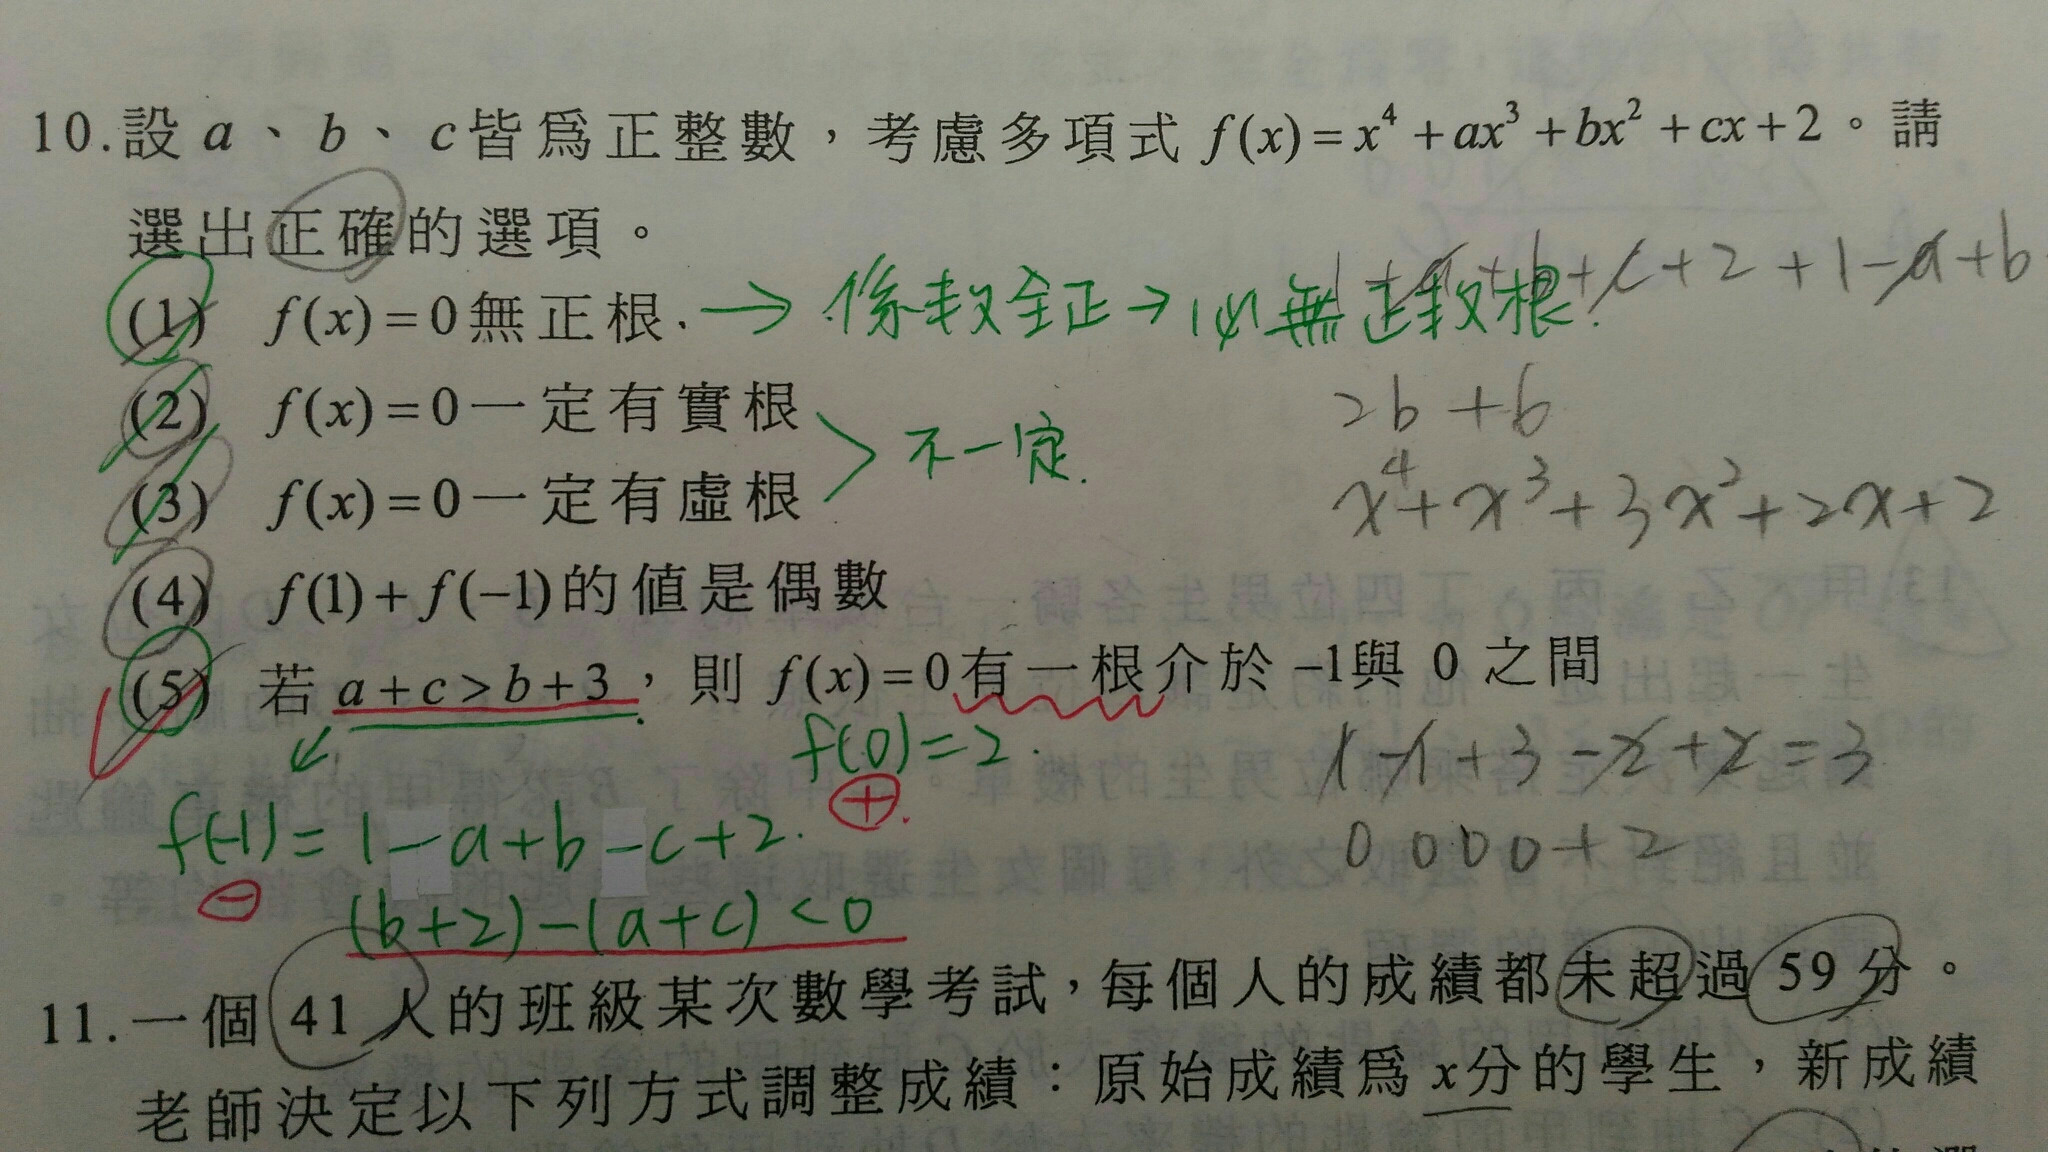 10.設 a、b、c皆為正整數，考慮多項式 f(x)=x⁴+ax³+bx²+cx+2。請
選出正確的選項。
1+a+b+c+2+1-a+b
(1) f(x)=0無正根. → 係數全正→必無正數根.
2b+6
(2) f(x)=0一定有實根
不一定.
(3) f(x)=0一定有虛根
x⁴+x³+3x²+2x+2
(4) f(1)+f(-1)的值是偶數
(5) 若 a+c>b+3，則 f(x)=0有一根介於 -1與 0 之間
f(0)=2.
⊕.
1-1+3-2+2=3
f(-1)=1-a+b-c+2.
⊖
0000+2
(b+2)-(a+c)<0
11.一個 41 人的班級某次數學考試，每個人的成績都未超過 59 分。
老師決定以下列方式調整成績：原始成績為 x分的學生，新成績